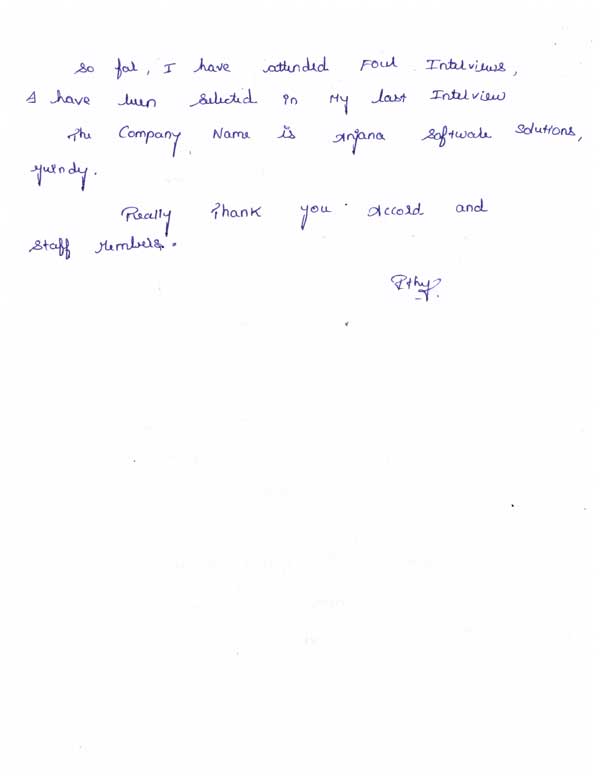 So far, I have attended Four Interviews,
I have been selected in My last Interview
The Company Name is Anjana Software Solutions,
guindy.
Really Thank you Accord and
Staff Members.